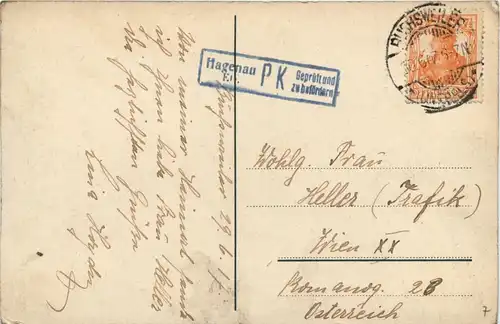 Buchsweiler 29.6.17
Von meiner Heimat sende
ich Ihnen liebe Frau Heller
die herzlichsten Grüßen
Hagenau
Els.
PK
Geprüft und
zu befördern
BUCHSWEILER
Wohlg. Frau
Heller (Trafik)
Wien XX
Romanog. 28
Österreich
7